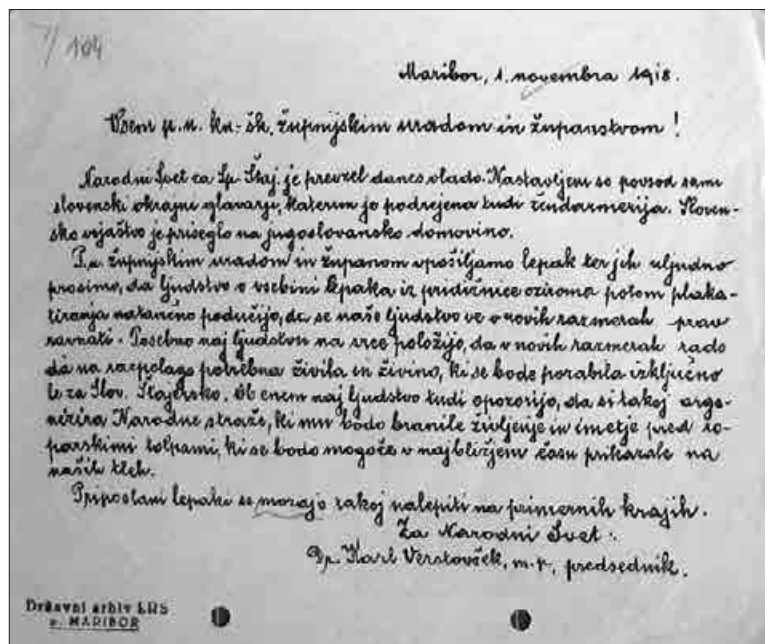 7/104
Maribor, 1. novembra 1918.
Vsem p. n. kn.-šk. župnijskim uradom in županstvom!
Narodni Svet za Sp. Štaj. je prevzel danes vlado. Nastavljeni so povsod sami
slovenski okrajni glavarji, katerim je podrejena tudi žendarmerija. Sloven-
sko vojaštvo je priseglo na jugoslovansko domovino.
P.n. župnijskim uradom in županom vpošiljamo lepak ter jih uljudno
prosimo, da ljudstvo o vsebini lepaka iz pridižnice oziroma potom plaka-
tiranja natančno podučijo, da se naše ljudstvo ve v novih razmerah prav
ravnati. Posebno naj ljudstvu na srce položijo, da v novih razmerah rado
dá na razpolago potrebna živila in živino, ki se bode porabila izključno
le za Slov. Štajersko. Ob enem naj ljudstvo tudi opozorijo, da si takoj orga-
nizira Narodne straže, ki mu bodo branile življenje in imetje pred ro-
parskimi tolpami, ki se bodo mogoče v najbližjem času prikazale na
naših tleh.
Priposlani lepaki se morajo takoj nalepiti na primernih krajih.
Za Narodni Svet:
Dr. Karl Verstovšek, m.p., predsednik.
Državni arhiv LRS
v MARIBOR